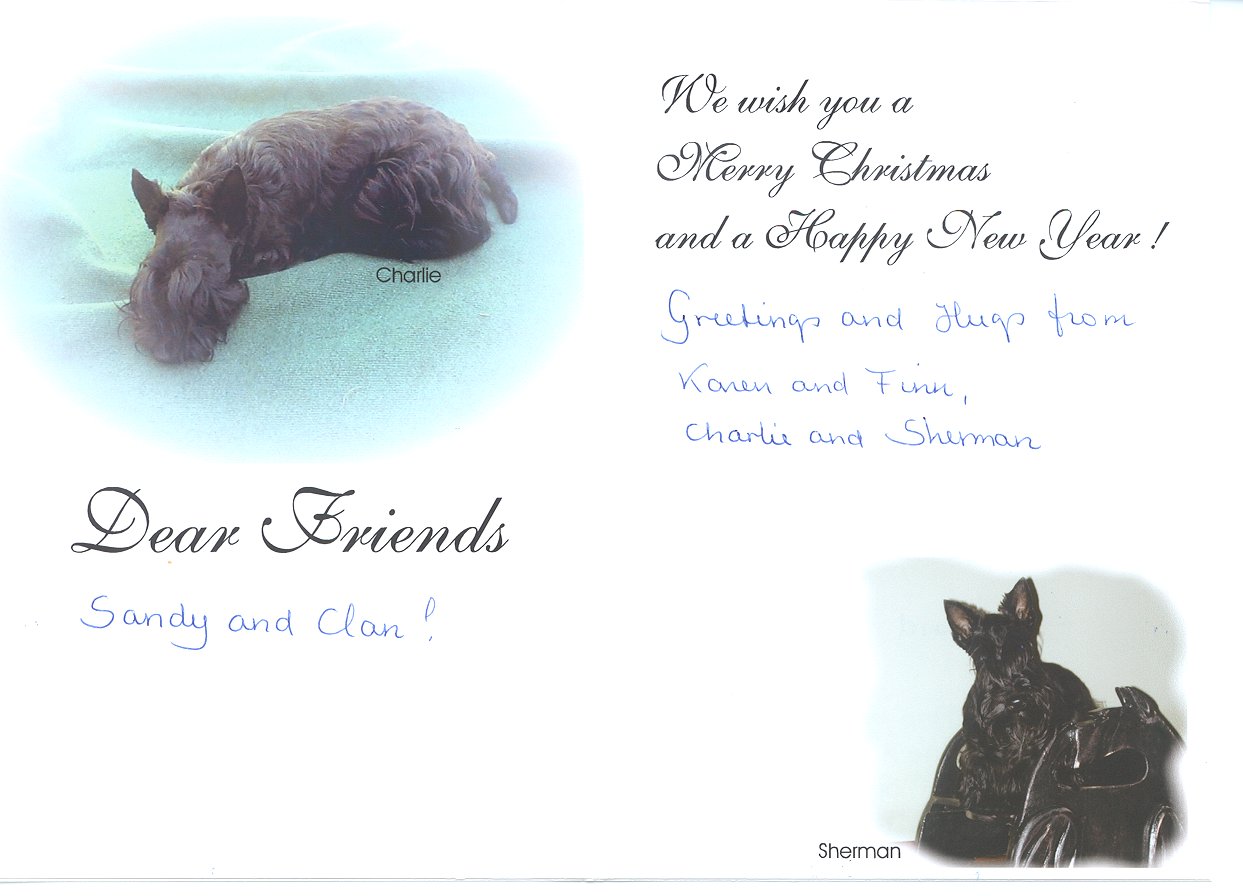 Charlie
Dear Friends
Sandy and Clan!
We wish you a
Merry Christmas
and a Happy New Year !
Greetings and Hugs from
Karen and Finn,
Charlie and Sherman
Sherman